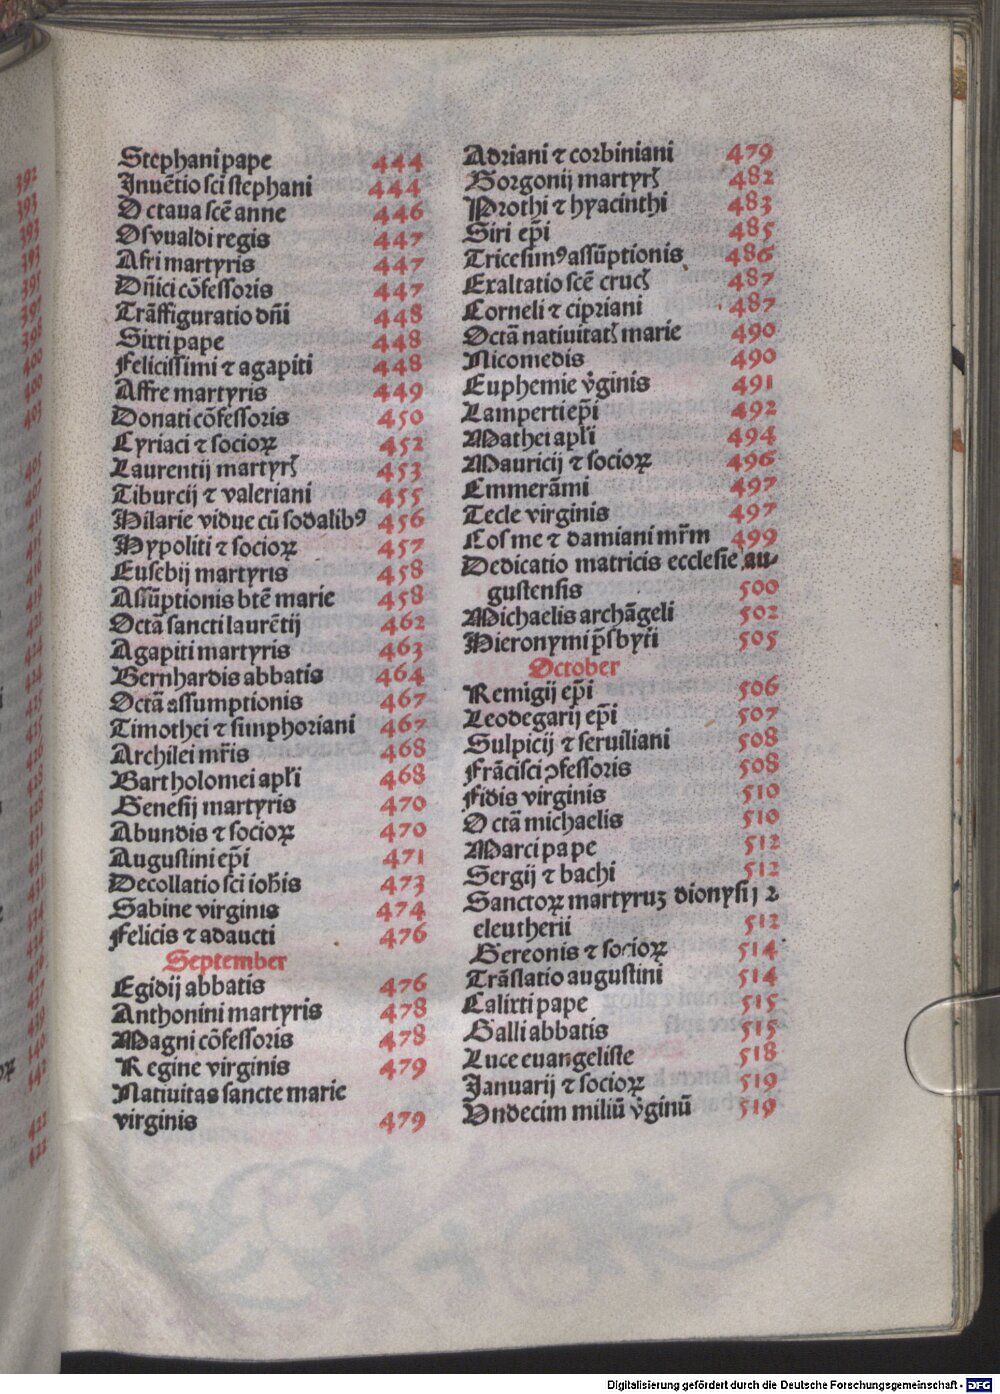 Stephani pape 444
Inuẽtio sci stephani 444
Octaua scẽ anne 446
Osvualdi regis 447
Afri martyris 447
Dñici cõfessoris 447
Trãffiguratio dñi 448
Sixti pape 448
Felicissimi ⁊ agapiti 448
Affre martyris 449
Donati cõfessoris 450
Cyriaci ⁊ socioꝝ 452
Laurentij martyrꝭ 453
Tiburcij ⁊ valeriani 455
Hilarie vidue cũ sodalibꝰ 456
Hypoliti ⁊ socioꝝ 457
Eusebij martyris 458
Assũptionis btẽ marie 458
Octã sancti laurẽtij 462
Agapiti martyris 463
Bernhardis abbatis 464
Octã assumptionis 467
Timothei ⁊ simphoriani 467
Archilei mr̃is 468
Bartholomei apł'i 468
Genesij martyris 470
Abundis ⁊ socioꝝ 470
Augustini ep̃i 471
Decollatio sci ioh̃is 473
Sabine virginis 474
Felicis ⁊ adaucti 476
September
Egidij abbatis 476
Anthonini martyris 478
Magni cõfessoris 478
Regine virginis 479
Natiuitas sancte marie
virginis 479
Adriani ⁊ corbiniani 479
Gorgonij martyrꝭ 482
Prothi ⁊ hyacinthi 483
Siri ep̃i 485
Tricesimꝰ assũptionis 486
Exaltatio scẽ crucꝭ 487
Corneli ⁊ cipriani 487
Octã natiuitatꝭ marie 490
Nicomedis 490
Euphemie v̾ginis 491
Lamperti ep̃i 492
Mathei apł'i 494
Mauricij ⁊ socioꝝ 496
Emmerãmi 497
Tecle virginis 497
Cosme ⁊ damiani mr̃m 499
Dedicatio matricis ecclesie au-
gustensis 500
Michaelis archãgeli 502
Hieronymi p̃sbyt̃i 505
October
Remigij ep̃i 506
Leodegarij ep̃i 507
Sulpicij ⁊ seruiliani 508
Frãcisci ꝯfessoris 508
Fidis virginis 510
Octã michaelis 510
Marci pape 512
Sergij ⁊ bachi 512
Sanctoꝝ martyruꝫ dionysij ⁊
eleutherii 512
Gereonis ⁊ socioꝝ 514
Trãslatio augustini 514
Calixti pape 515
Galli abbatis 515
Luce euangeliste 518
Januarij ⁊ socioꝝ 519
Vndecim miliũ v̾ginũ 519
Digitalisierung gefördert durch die Deutsche Forschungsgemeinschaft - DFG